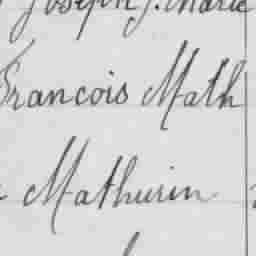 Joseph J. Marie
Francois Math
Mathurin